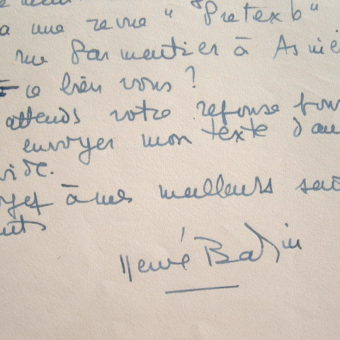 a une revue " Pretexte"
rue Parmentier à Asniè
ce bien vous ?
attends votre reponse pour
envoyer mon texte d'au
vide.
à mes meilleurs
Hervé Bazin